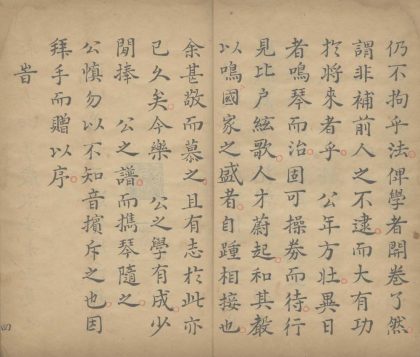 仍不拘乎法俾學者開卷了然
謂非補前人之不逮而大有功
於將來者乎　公年方壯異日
者鳴琴而治固可操券而待行
見比户絃歌人才蔚起和其聲
以鳴國家之盛者自踵相接也
余甚敬而慕之且有志於此亦
已久矣今樂　公之學有成少
閒捧　公之譜而攜琴隨之
公慎勿以不知音擯斥之也因
拜手而贈以序
旹